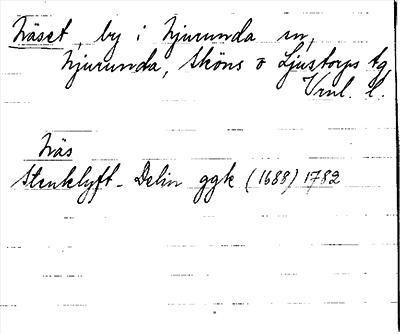 Näset, by i Njurunda sn,
Njurunda, Sköns o Ljustorps tg,
Vnl. l.
Näs
Stenklyft - Delin ggk (1688) 1782